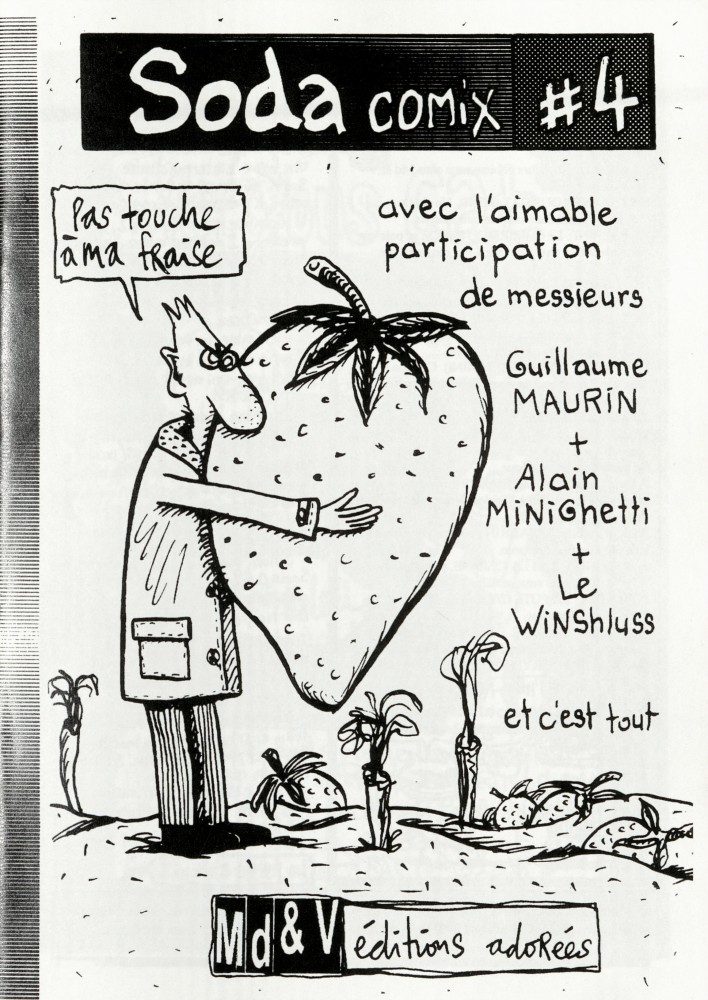 Soda comix #4
Pas touche
à ma fraise
avec l'aimable
participation
de messieurs
Guillaume
MAURiN
+
Alain
MiNiGhetti
+
Le
WiNShluss
et c'est tout
Md&V éditions adoRées